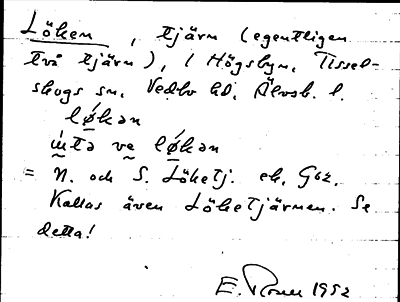 Löken, tjärn (egentligen
två tjärn), i Högsbyn, Tissel-
skogs sn, Vedbo hd, Älvsb. l.
løkən
ı̣ntə ve løkən
= N. och S. Löketj. ek.
Kallas även Löketjärnen. Se
detta!
E. 1952